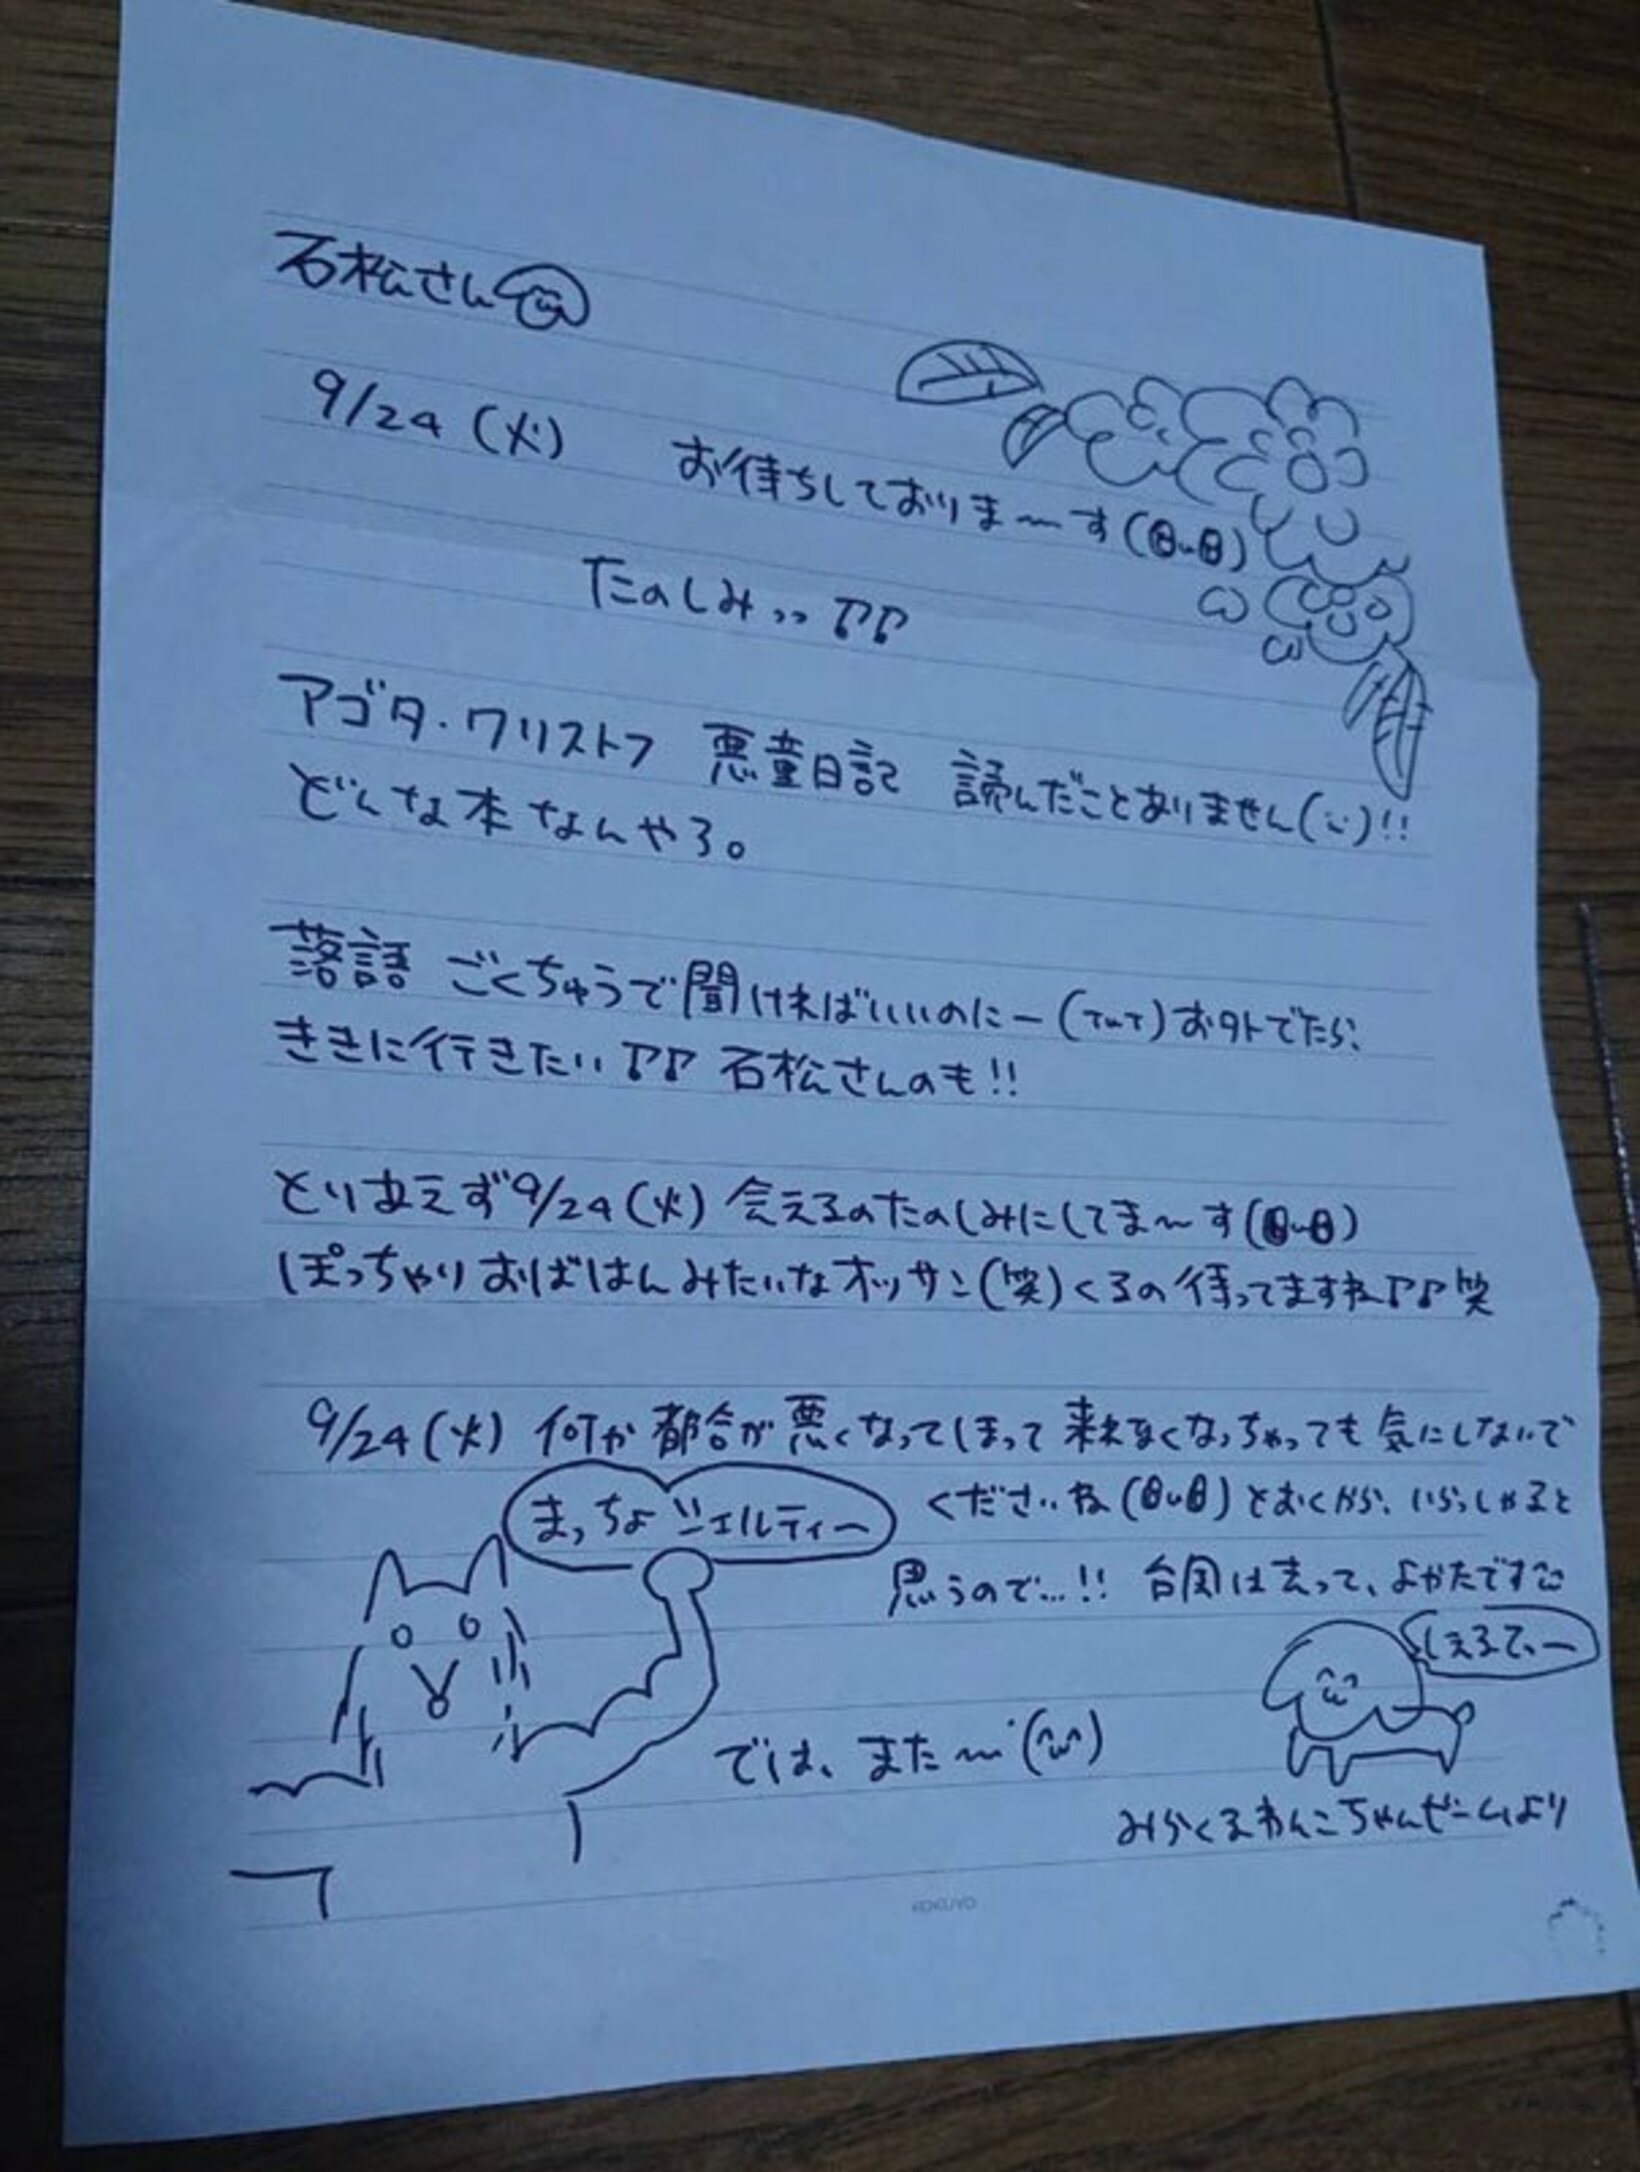 石松さん
9/24 (火) お待ちしておりま〜す
たのしみっっ♪♪
アゴタ・クリストフ 悪童日記 読んだことありません(¨)!!
どんな本なんやろ。
落語 ごくちゅうで聞ければいいのにー(TωT)お外でたら、
ききに行きたい♪♪ 石松さんのも!!
とりあえず9/24(火) 会えるのたのしみにしてま〜す
ぽっちゃりおばはんみたいなオッサン(笑)くるの待ってますね♪♪笑
9/24(火) 何か都合が悪くなってしまって来れなくなっちゃっても気にしないで
くださいね とおくから、いらっしゃると
まっちょシェルティー
思うので…!! 台風は去って、よかたです
しぇるてぃー
では、また〜(^ω^)
みらくるわんこちゃんぜーむより
KOKUYO